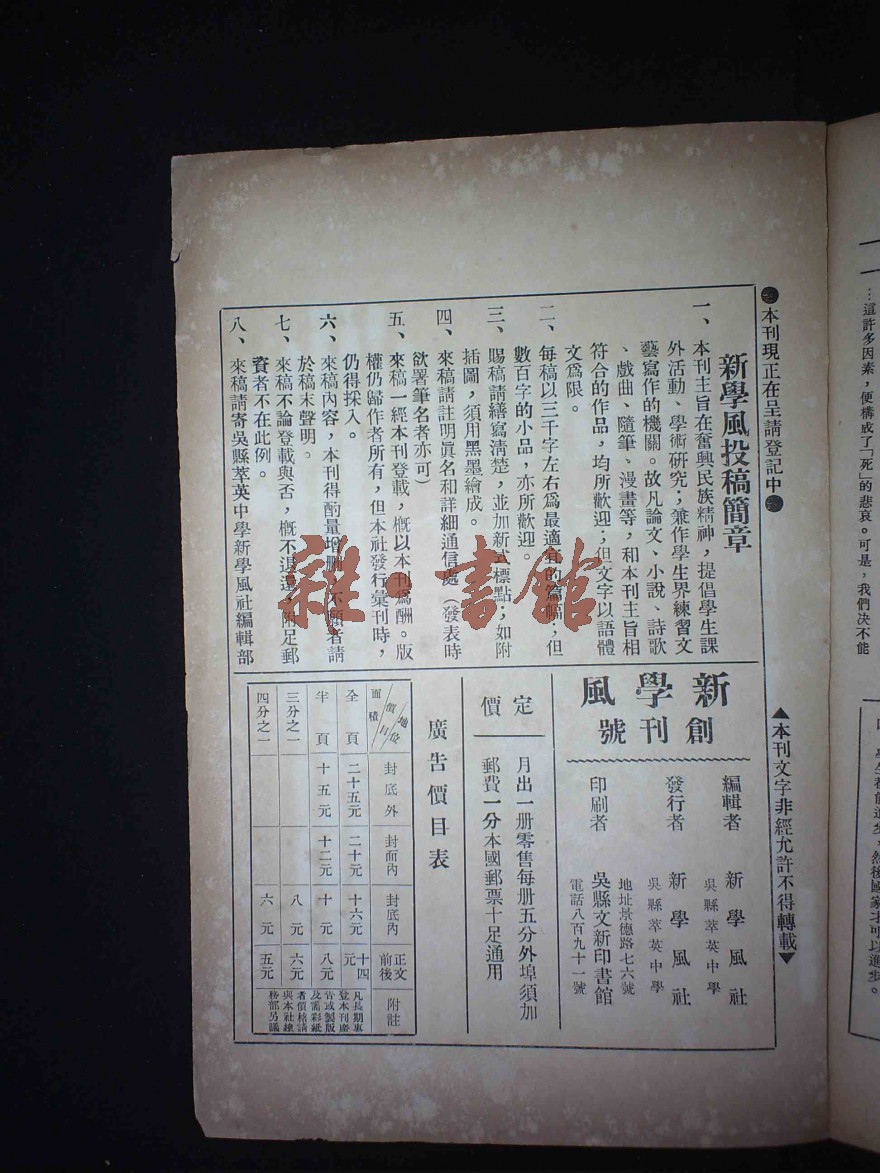 ●本刊現正在呈請登記中●
▲本刊文字非經允許不得轉載▼
新學風投稿簡章
一、本刊主旨在奮興民族精神，提倡學生課
外活動、學術研究；兼作學生界練習文
藝寫作的機關。故凡論文、小說、詩歌
、戲曲、隨筆、漫畫等，和本刊主旨相
符合的作品，均所歡迎；但文字以語體
文爲限。
二、每稿以三千字左右爲最適宜的篇幅，但
數百字的小品，亦所歡迎。
三、賜稿請繕寫清楚，並加新式標點，如附
插圖，須用黑墨繪成。
四、來稿請註明眞名和詳細通信處（發表時
欲署筆名者亦可）
五、來稿一經本刊登載，槪以本刊爲酬。版
權仍歸作者所有，但本社發行彙刊時，
仍得採入。
六、來稿內容，本刊得酌量增刪，不願者請
於稿末聲明。
七、來稿不論登載與否，槪不退還，附足郵
資者不在此例。
八、來稿請寄吳縣萃英中學新學風社編輯部
新學風
創刊號
編輯者 新學風社
吳縣萃英中學
發行者 新學風社
吳縣萃英中學
印刷者 吳縣文新印書館
地址景德路七六號
電話八百九十一號
定價
月出一册零售每册五分外埠須加
郵費一分本國郵票十足通用
廣告價目表
地位 價目 面積 封底外 封面內 封底內 正文前後 附註
全頁 二十五元 二十元 十六元 十四元
半頁 十五元 十二元 十元 八元
三分之一 八元 六元
四分之一 六元 五元
凡長期惠
登本刊廣
告或製版
及需彩紙
者價格請
與本社總
務部另議
雜·書館
…這許多因素，便構成了「死」的悲哀。可是，我們決不能
然後國家才可以進步。